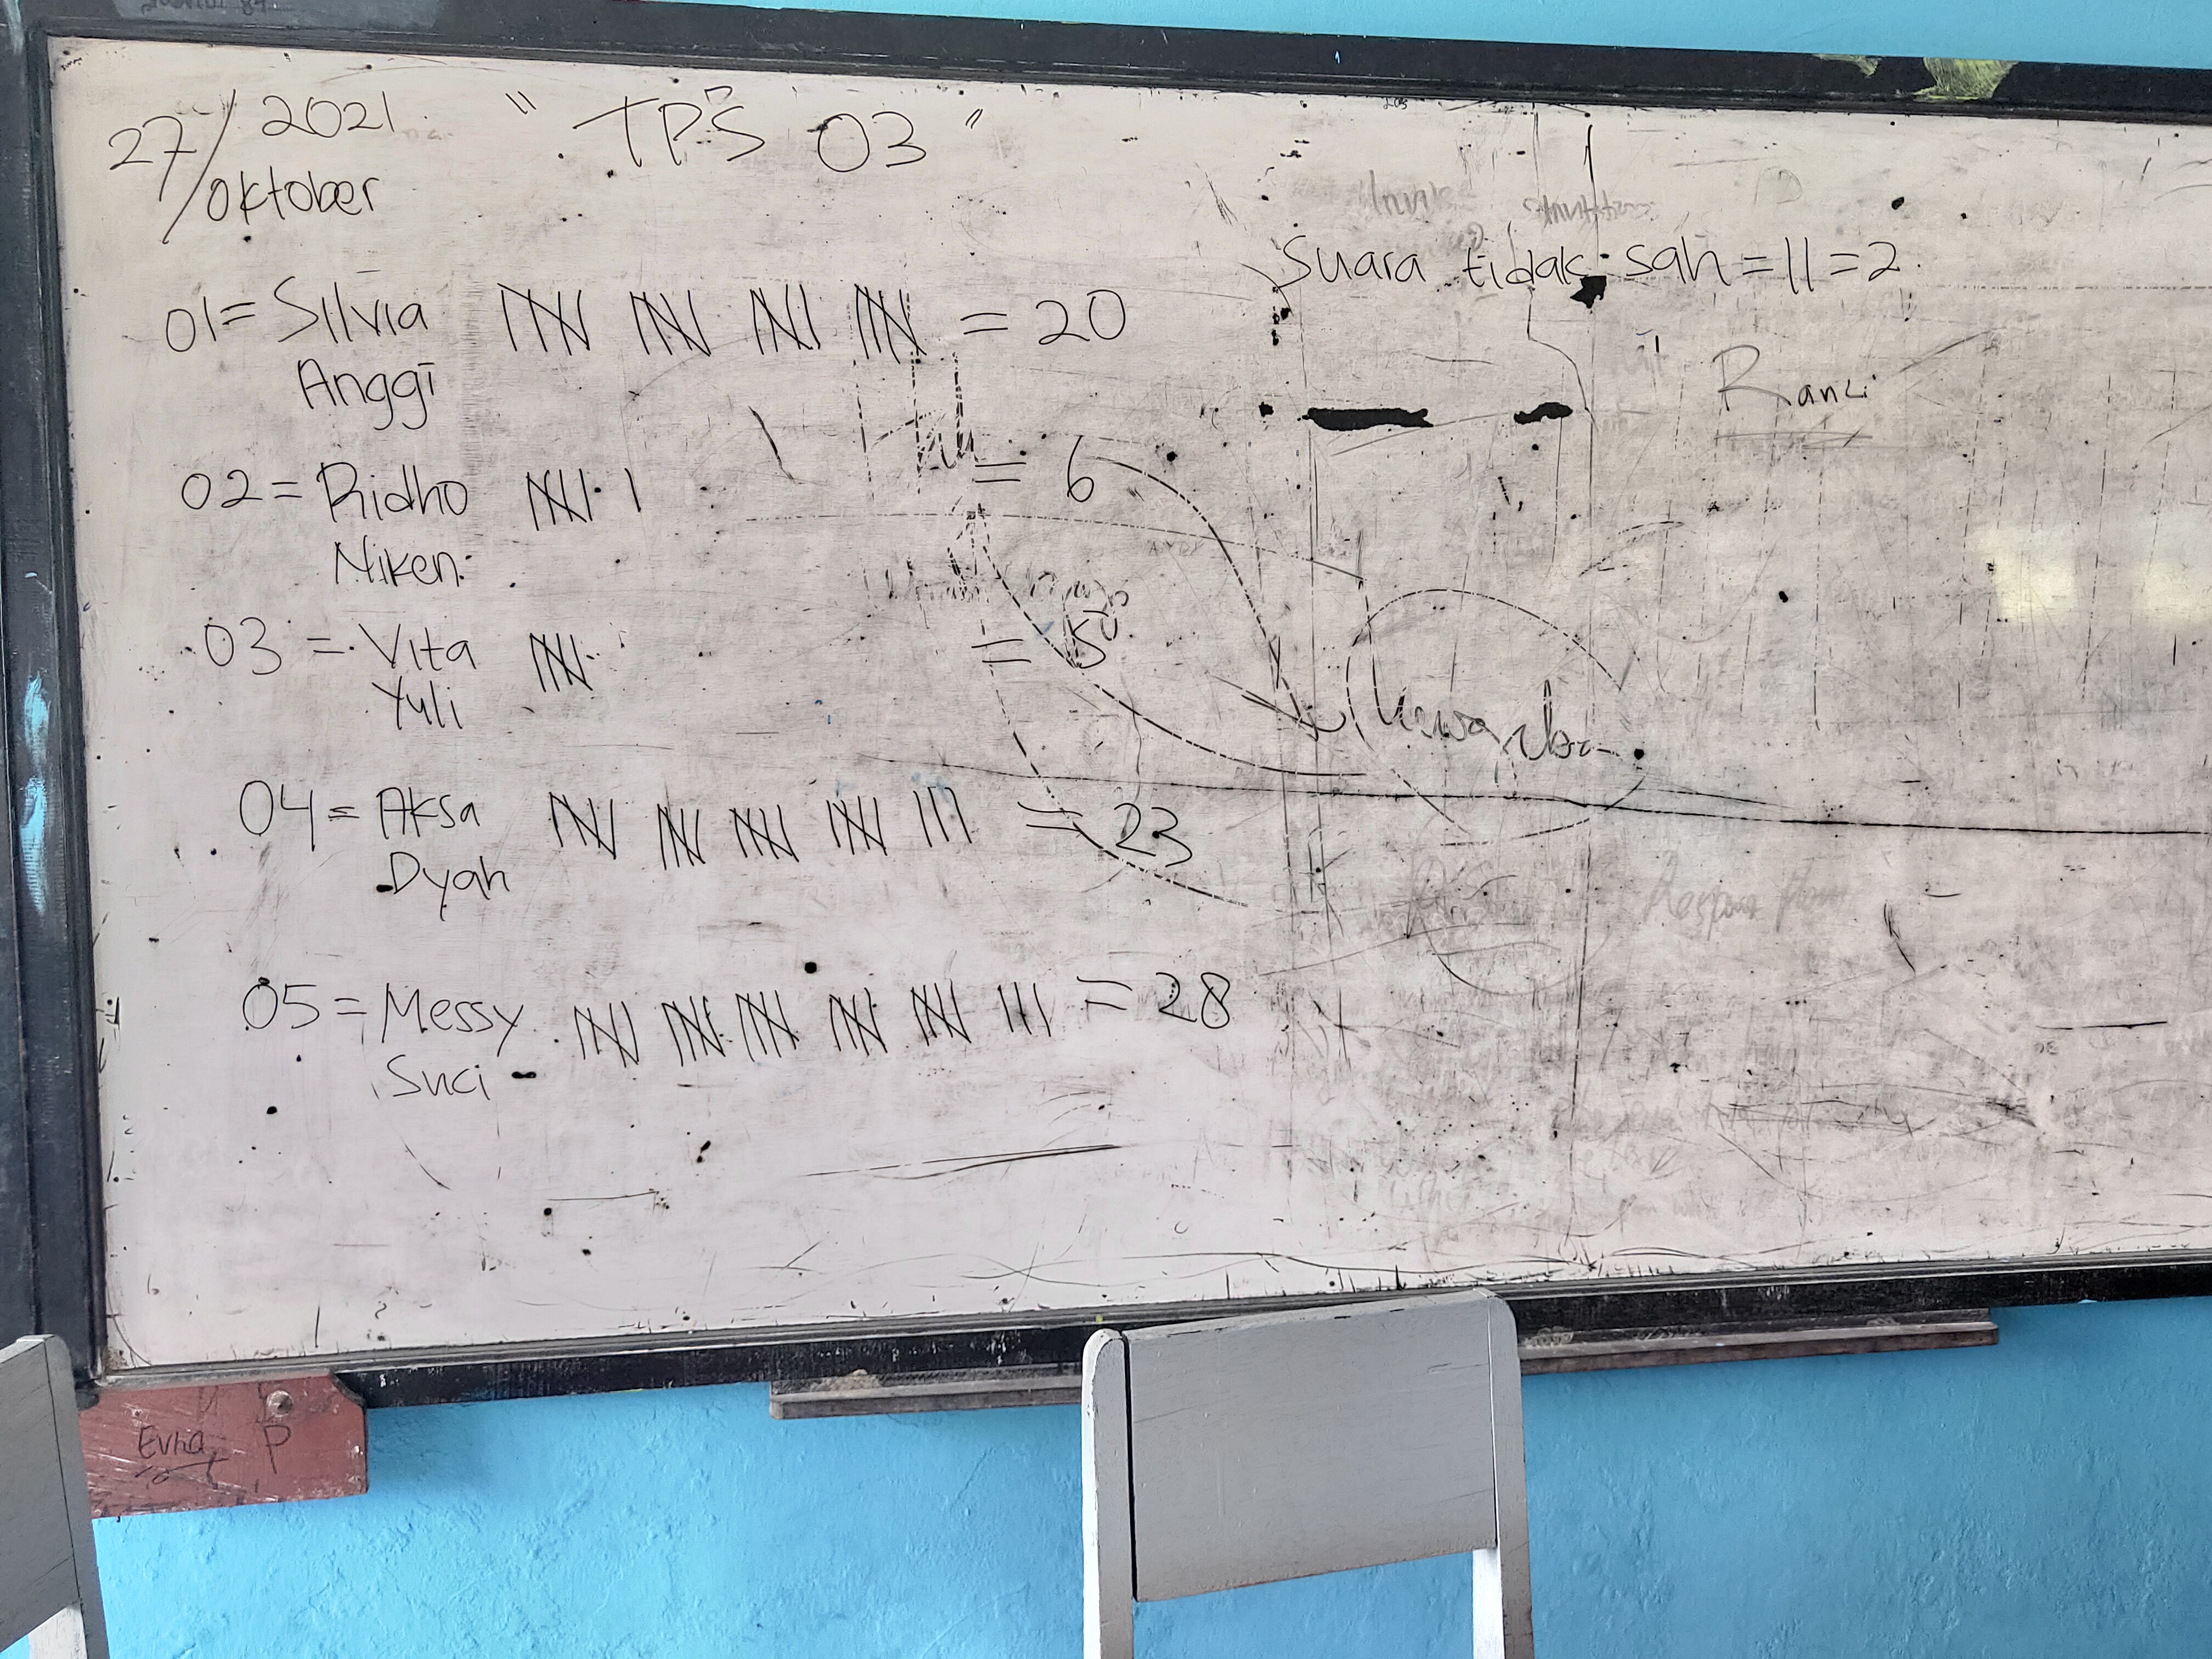 27/ 2021 " TPS 03 "
Oktober
Suara tidak sah = 11 = 2
01 = Silvia = 20
Anggi
Ranci
02 = Ridho 1 = 6
Niken
03 = Vita = 5
Yuli
04 = Aksa 111 = 23
Dyah
05 = Messy 111 = 28
Suci
Evha P